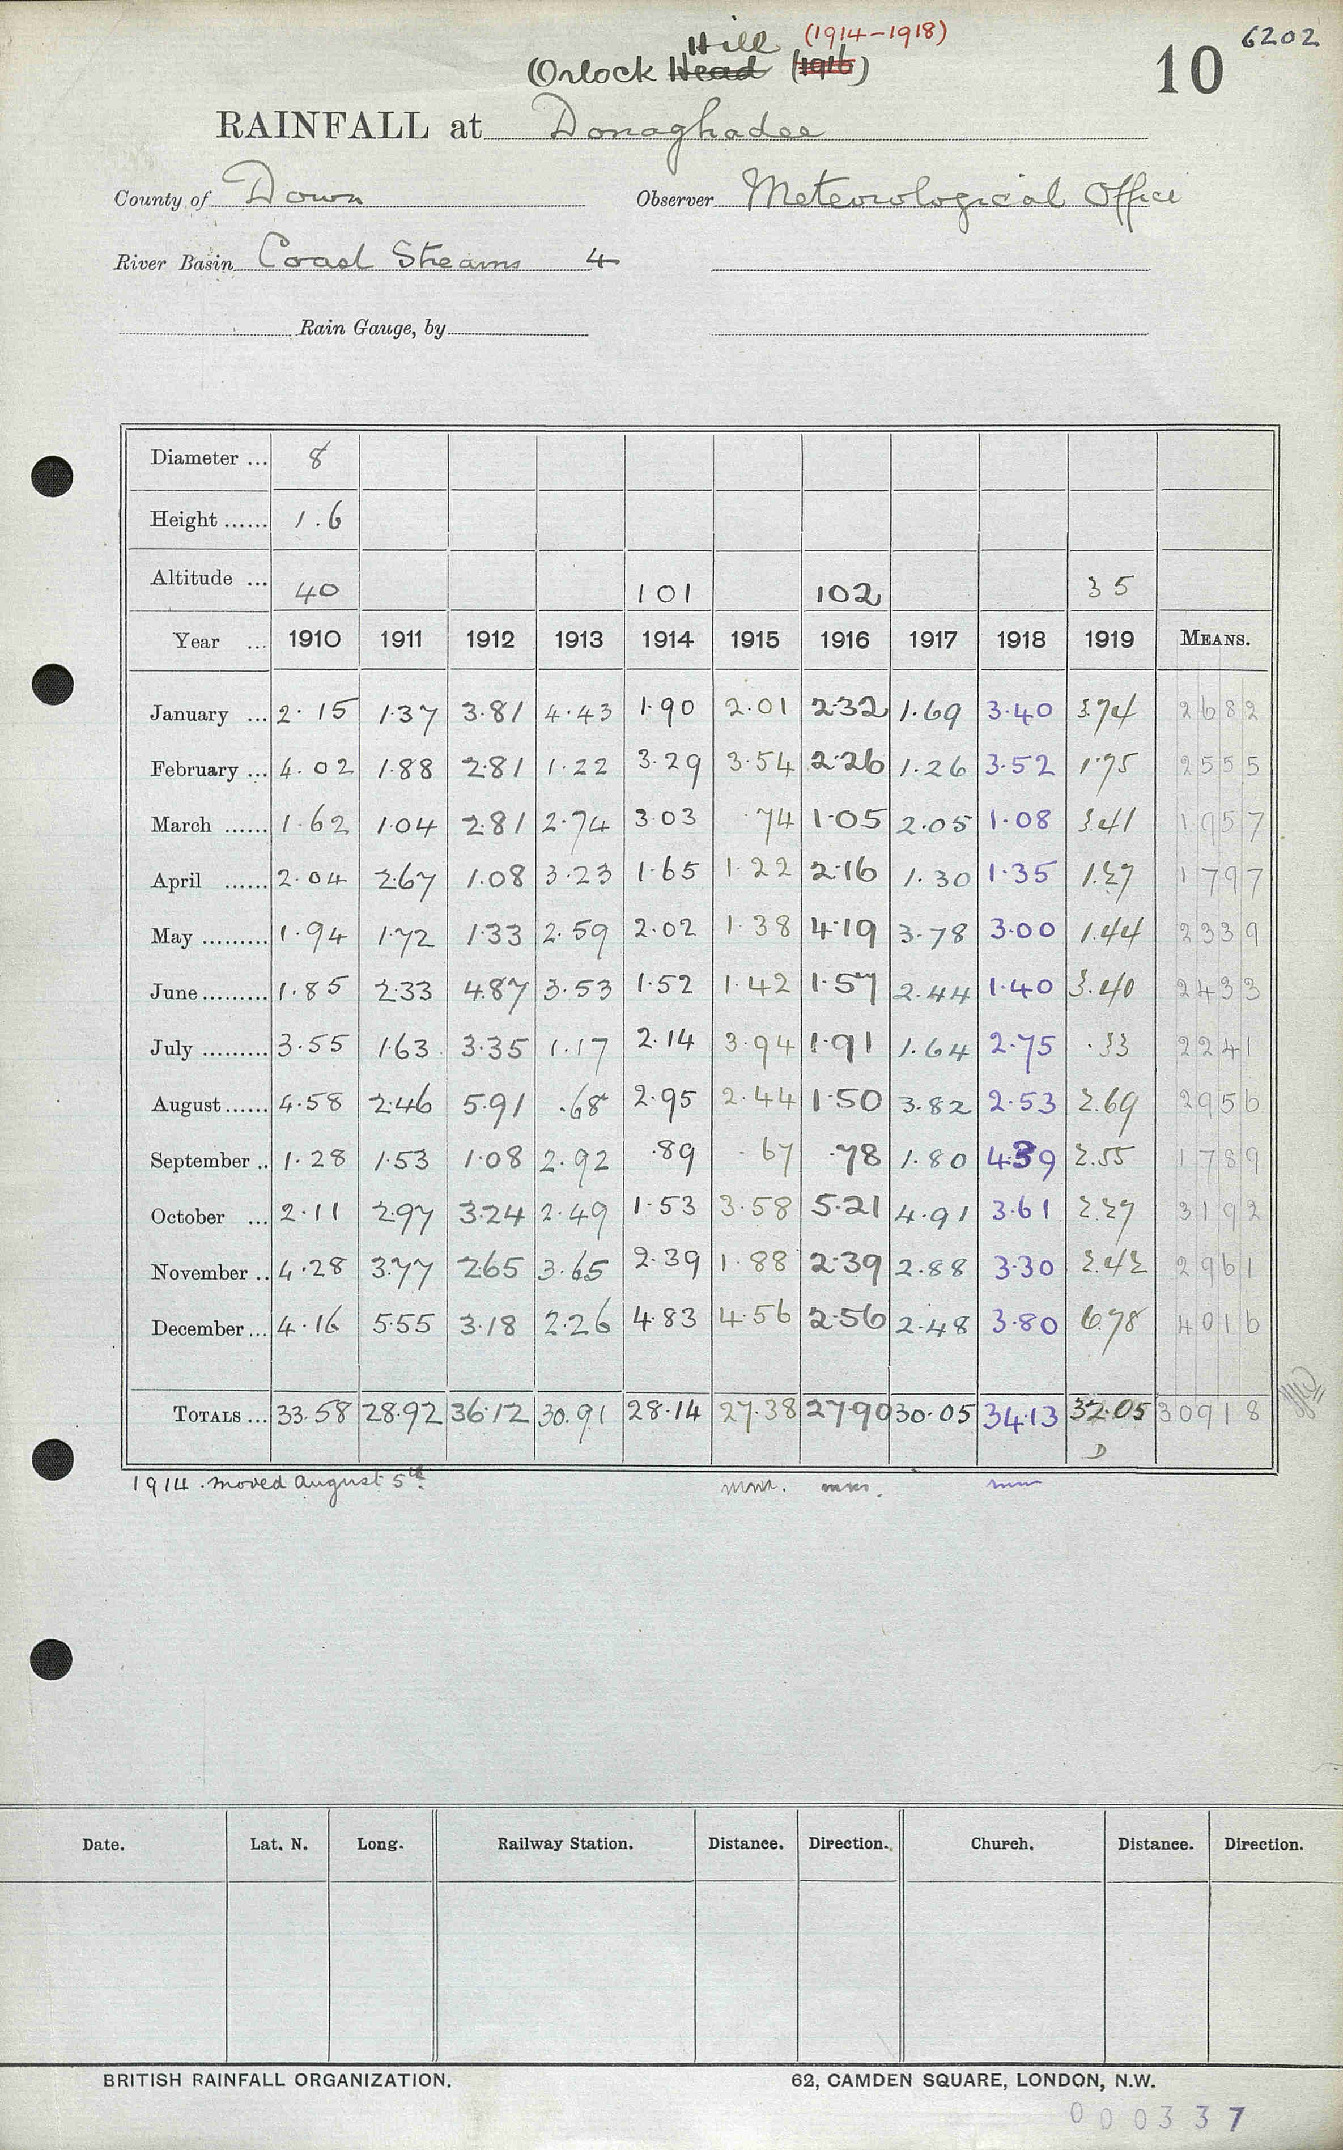 6202
Hill (1914-1918)
(Orlock Head (1916)
10
RAINFALL at Donaghadee
County of Down Observer Meteorological Office
River Basin Coast Streams 4
Rain Gauge, by
Diameter ... 8
Height ...... 1.6
Altitude ... 40 101 102 35
Year ... 1910 1911 1912 1913 1914 1915 1916 1917 1918 1919 MEANS.
January ... 2.15 1.37 3.81 4.43 1.90 2.01 2.32 1.69 3.40 3.74 2682
February ... 4.02 1.88 2.81 1.22 3.29 3.54 2.26 1.26 3.52 1.75 2555
March ...... 1.62 1.04 2.81 2.74 3.03 .74 1.05 2.05 1.08 3.41 1957
April ...... 2.04 2.67 1.08 3.23 1.65 1.22 2.16 1.30 1.35 1.27 1797
May ......... 1.94 1.72 1.33 2.59 2.02 1.38 4.19 3.78 3.00 1.44 2339
June......... 1.85 2.33 4.87 3.53 1.52 1.42 1.57 2.44 1.40 3.40 2433
July ......... 3.55 1.63 3.35 1.17 2.14 3.94 1.91 1.64 2.75 .33 2241
August...... 4.58 2.46 5.91 .68 2.95 2.44 1.50 3.82 2.53 2.69 2956
September .. 1.28 1.53 1.08 2.92 .89 .67 .78 1.80 4.39 2.55 1789
October ... 2.11 2.97 3.24 2.49 1.53 3.58 5.21 4.91 3.61 2.27 3192
November .. 4.28 3.77 2.65 3.65 2.39 1.88 2.39 2.88 3.30 2.42 2961
December... 4.16 5.55 3.18 2.26 4.83 4.56 2.56 2.48 3.80 6.78 4016
TOTALS ... 33.58 28.92 36.12 30.91 28.14 27.38 27.90 30.05 34.13 32.05 30918
D
1914. moved August 5th. mm. mm. mm
Date. Lat. N. Long. Railway Station. Distance. Direction. Church. Distance. Direction.
BRITISH RAINFALL ORGANIZATION. 62, CAMDEN SQUARE, LONDON, N.W.
000337